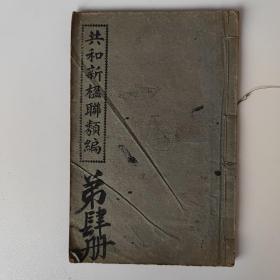 共和新楹聯類編
第肆册